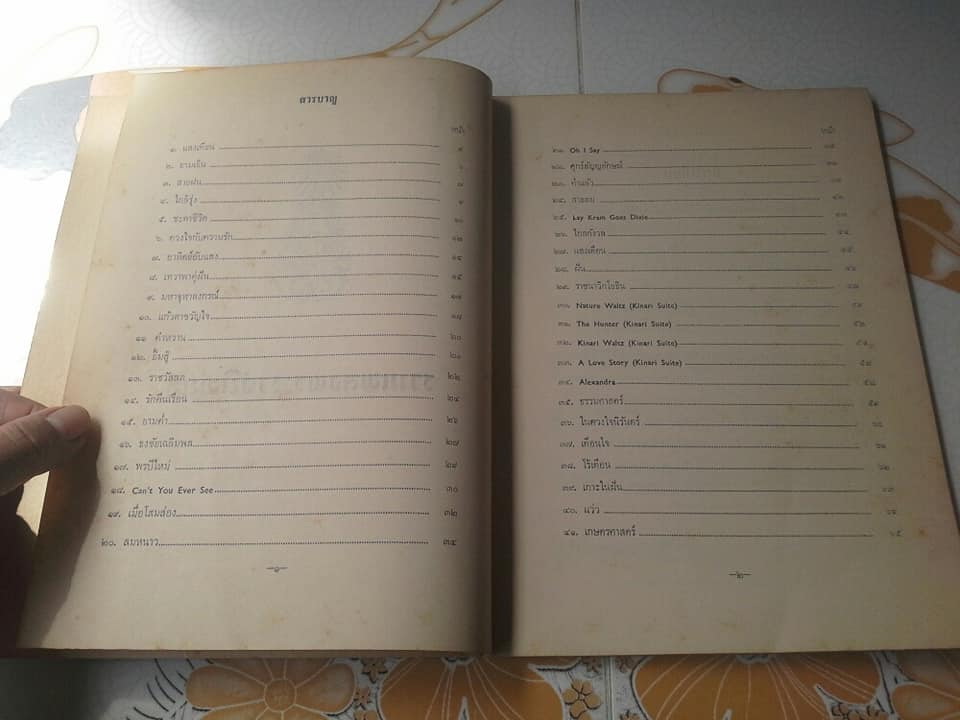 สารบาญ
หน้า
๑. แสงเทียน
๒. ยามเย็น
๓. สายฝน ๗
๔. ใกล้รุ่ง ๙
๕. ชะตาชีวิต ๑๐
๖. ดวงใจกับความรัก ๑๒
๗. อาทิตย์อับแสง ๑๔
๘. เทวาพาคู่ฝัน ๑๕
๙. มหาจุฬาลงกรณ์ ๑๗
๑๐. แก้วตาขวัญใจ ๑๘
๑๑. คำหวาน ๒๐
๑๒. ยิ้มสู้ ๒๑
๑๓. ราชวัลลภ ๒๒
๑๔. รักคืนเรือน ๒๔
๑๕. ยามค่ำ ๒๖
๑๖. ธงชัยเฉลิมพล ๒๗
๑๗. พรปีใหม่ ๒๙
๑๘. Can't You Ever See ๓๐
๑๙. เมื่อโสมส่อง ๓๒
๒๐. ลมหนาว ๓๔
—๑—
หน้า
๒๑. Oh I Say
๒๒. ศุกร์สัญญลักษณ์
๒๓. คำแล้ว
๒๔. สายลม
๒๕. Lay Kram Goes Dixie
๒๖. ไกลกังวล ๔๔
๒๗. แสงเดือน ๔๕
๒๘. ฝัน ๔๖
๒๙. ราชนาวิกโยธิน
๓๐. Nature Waltz (Kinari Suite)
๓๑. The Hunter (Kinari Suite)
๓๒. Kinari Waltz (Kinari Suite)
๓๓. A Love Story (Kinari Suite)
๓๔. Alexandra
๓๕. ธรรมศาสตร์
๓๖. ในดวงใจนิรันดร์
๓๗. เตือนใจ
๓๘. ไร้เดือน ๖๒
๓๙. เกาะในฝัน ๖๓
๔๐. แว่ว ๖๔
๔๑. เกษตรศาสตร์ ๖๕
—๒—